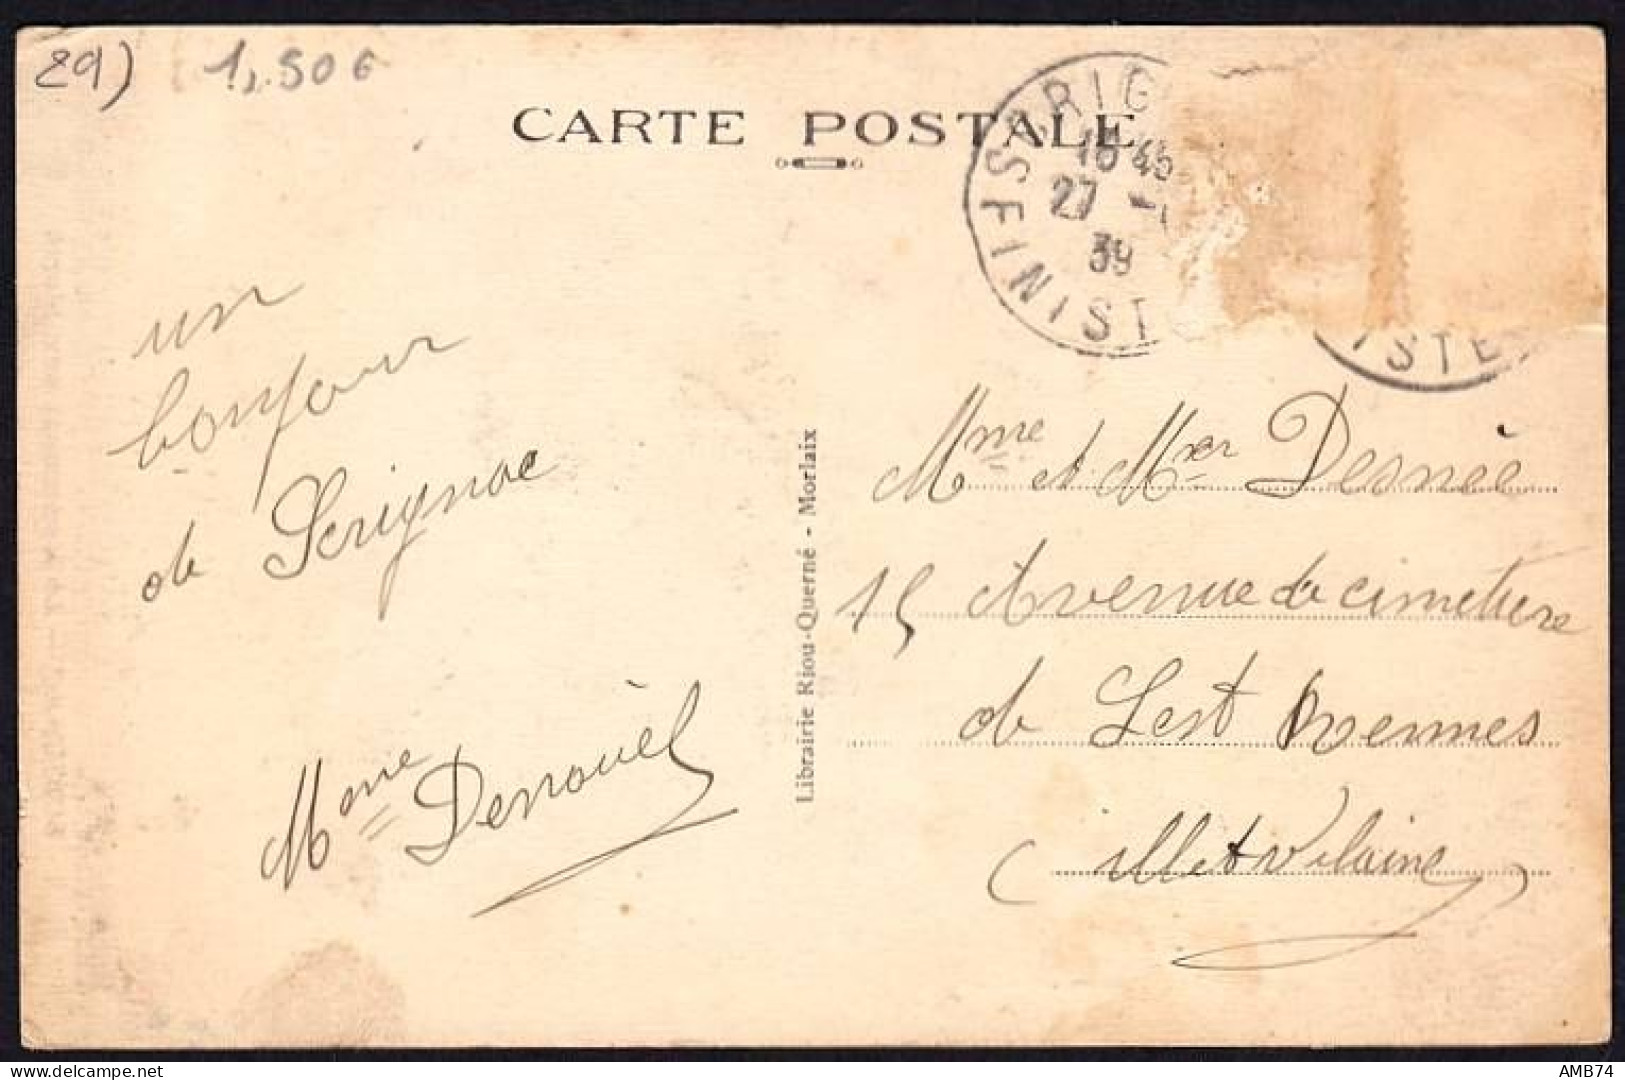 29)
1,50€
CARTE POSTALE
SCRIG
18 45
27 -1
39
FINIST
ISTE
un
bonjour
de Scrignac
Mme Denouël
Librairie Riou-Querné - Morlaix
Mme et Mr Desnée
15 Avenue de cimetière
de Lest Rennes
(ille et Vilaine)
AMB74